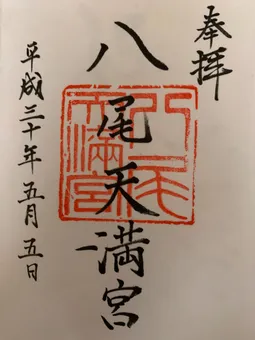 奉拝
八尾天満宮
平成三十年五月五日
八尾天満宮